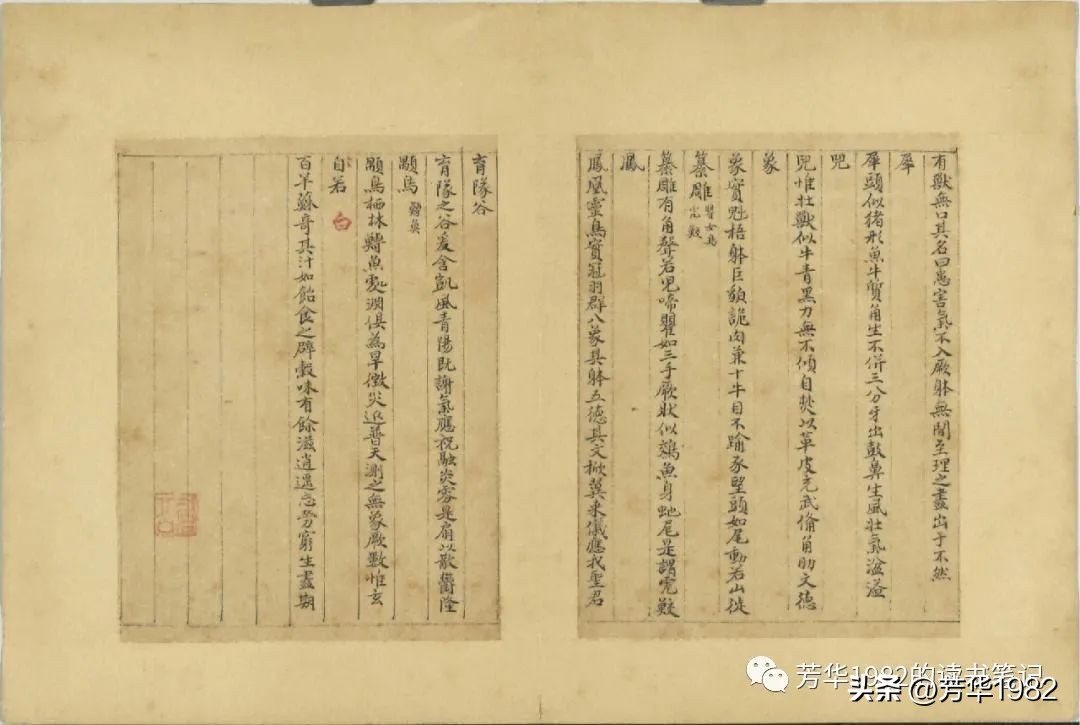 有獸無口其名曰𢙐害氣不入厥躰無間至理之盡出于不然
犀
犀頭似猪形兼牛質角生不併三分牙出鼓鼻生風壯氣溢溢
兕
兕惟壯獸似牛青黑力無不傾自焚以革皮充武備角助文德
象
象實魁梧躰巨貌詭肉兼十牛目不踰豕望頭如尾動若山徙
纂雕 瞿女鳥 虎鮫
纂雕有角聲若児啼瞿如三手厥狀似鵁魚身虵尾是謂虎鮫
鳳
鳳凰靈鳥實冠羽群八象其躰五德其文掀翼来儀應我聖君
育隊谷
育隊之谷爰含凱風青陽既謝氣應祝融炎雰是扇以散欝隆
顒鳥 鱄魚
顒鳥栖林鱄魚處淵俱為旱徵災延普天測之無象厥數惟玄
自若 白
百羊蘇奇其汁如飴食之辟穀味有餘滋逍遥忘勞窮生盡期
芳华1982的读书笔记
头条 @芳华1982